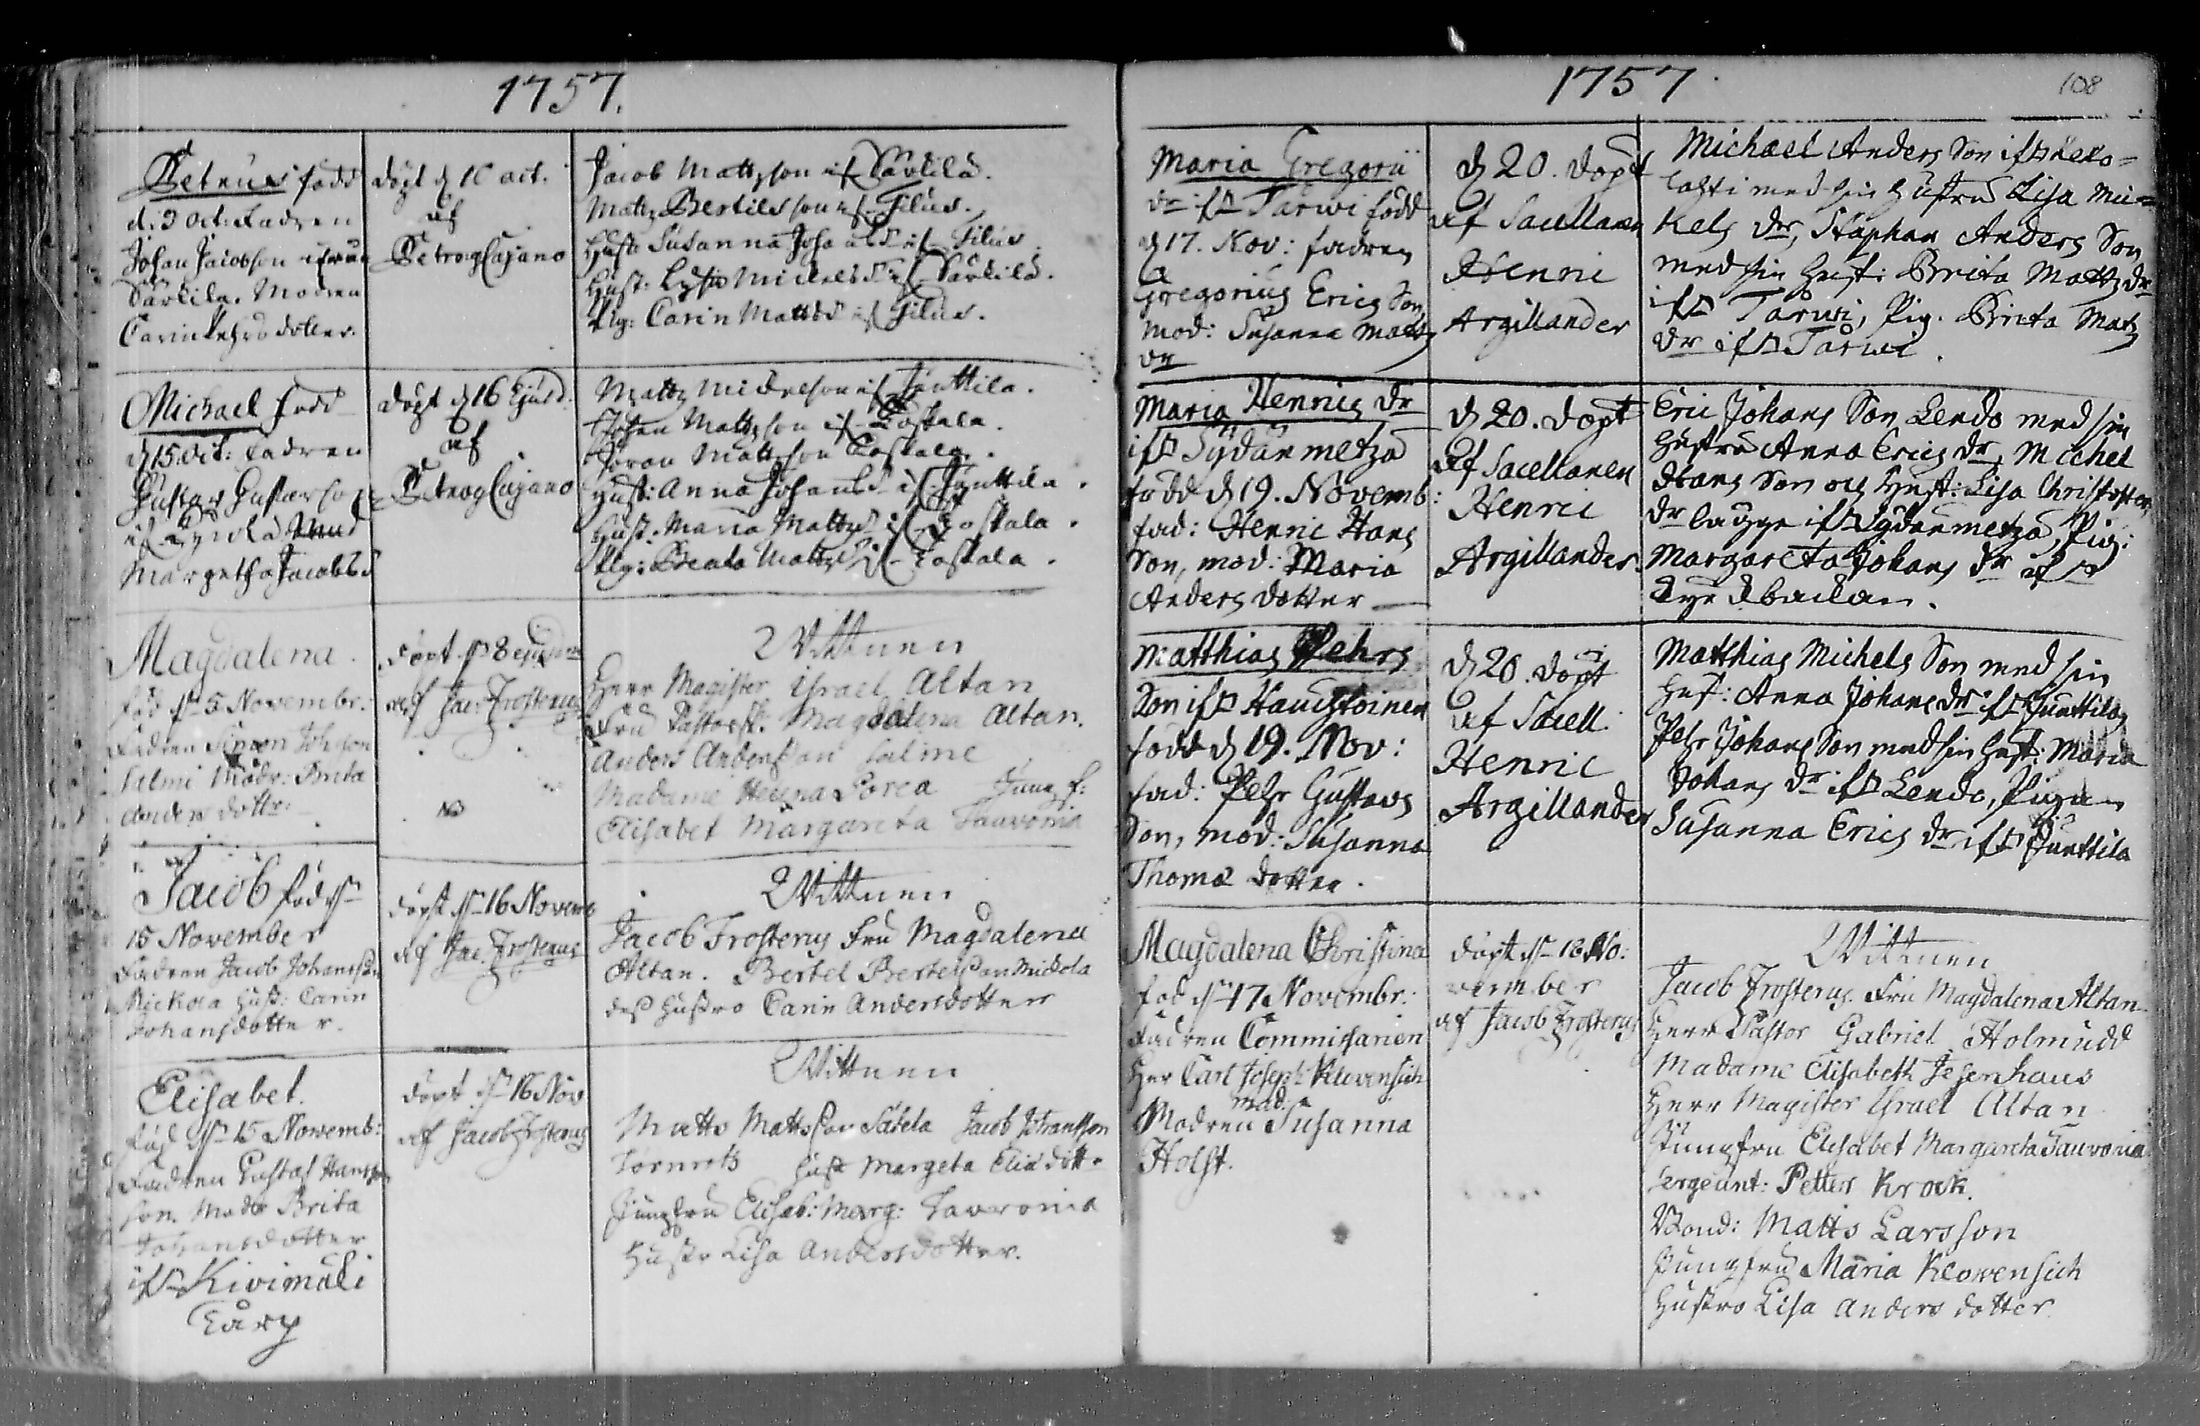 1757.
Petrus född
d. 9 oct. Fadren
Johan Jacobson ifrån
Särkilä. Modren
Carin Pehrsdotter.
döpt d 16 oct.
af
Petro Cajano
Jacob Mattsson if. Särkilä.
Matts Bertilsson if. Filus.
Hust. Susanna Joha
Hust.
Pig: Carin Mattsd if Filus.
Michael född
d 15 Oct: Fadren
Gustav Gustavson
Margetha Jacobsd
döpt d 16 Ejusd.
af
Petro Cajano
Matts Michelson if Junttila.
Johan Mattsson if Koskala.
Göran Mattsson Koskala.
Hust: Anna Johansd if Junttila.
Hust: Maria Mattsd if Koskala.
Pig: Beata Mattsd if Koskala.
Magdalena
föd d 5 Novembr.
Fadren Simon Johsson
Salmi Modr: Brita
Anders dottr:
Döpt d 8 ejusdem
af Jac. Frosterus
Wittnen
Herr Magister Israel Altan
Fru Magdalena Altan.
Anders Andersson Salme
Madame Helena Jungf:
Elisabet Margareta Tauvonia
Jacob föd d
15 November
Fadren Jacob Johansson
Mickola Hust: Carin
Johansdotter.
Döpt d 16 Novemb
af Jac. Frosterus
Wittnen
Jacob Frosterus Fru Magdalena
Altan. Bertel Bertelsson Mickola
des Hustro Carin Andersdotter
Elisabet.
föd d 15 Novemb:
Fadren Gustaf Hans
son. Modr Brita
Johansdotter
if Kivimäki
Döpt d 16 Nov
af Jacob Frosterus
Wittnen
Matts Mattsson Jacob Johansson
Hust Margeta
Jungfru Elisab: Marg: Tavronia
Hustr Lisa Andersdotter.
1757
108
Maria Gregorii
dr ifr Tarwi född
d 17. Nov: fadren
Gregorius Erics Son
mod: Susanna Matts
dr
d 20. döpt
af Sacellanen
Henric
Argillander
Michael Anders Son ifr
med sin Hustru Lisa Mic=
kels dr, Staphan Anders Son
med sin Hust: Brita Matts dr
ifr Tarwi, Pig. Brita Mats
dr ifr Tarwi.
Maria Henrics dr
ifr Sydänmetzä
född d 19. Novemb:
fad: Henric Hans
Son, mod: Maria
Anders dotter
d 20. döpt
af Sacellanen
Henric
Argillander
Eric Johans Son Lendo med sin
Hustru Anna Erics dr, Michel
Hans Son och Hust: Lisa Christoffers
dr bagge ifr Sydänmetzä, Pig:
Margareta Johans dr
Matthias Pehrs
Son ifr Hauchioinen
född d 19. Nov:
fad: Pehr Gustavs
Son, mod: Susanna
Thomæ dotter.
d 20. döpt
af Sacell.
Henric
Argillander
Matthias Michels Son med sin
Hust: Anna Johans dr ifr Junttila,
Pehr Johans Son med sin Hust: Maria
Johans dr ifr Lendo, Pigan
Susanna Erics dr ifr Junttila
Magdalena Christina
föd d 17 Novembr:
Fadren Commissarien
Her Carl Joseph Klovensich
Mad:
Modren Susanna
Holst.
Döpt d 18 No:
vember
af Jacob Frosterus
Wittnen
Jacob Frosterus. Fru Magdalena Altan
Herr Pastor Gabriel Holmudd
Madame Elisabeth
Herr Magister Israel Altan
Jungfru Elisabet Margareta Tauvonia
Sergeant: Petter Krook.
Bond: Matts Larsson
Jungfru Maria Klovensich
Hustro Lisa Anders dotter